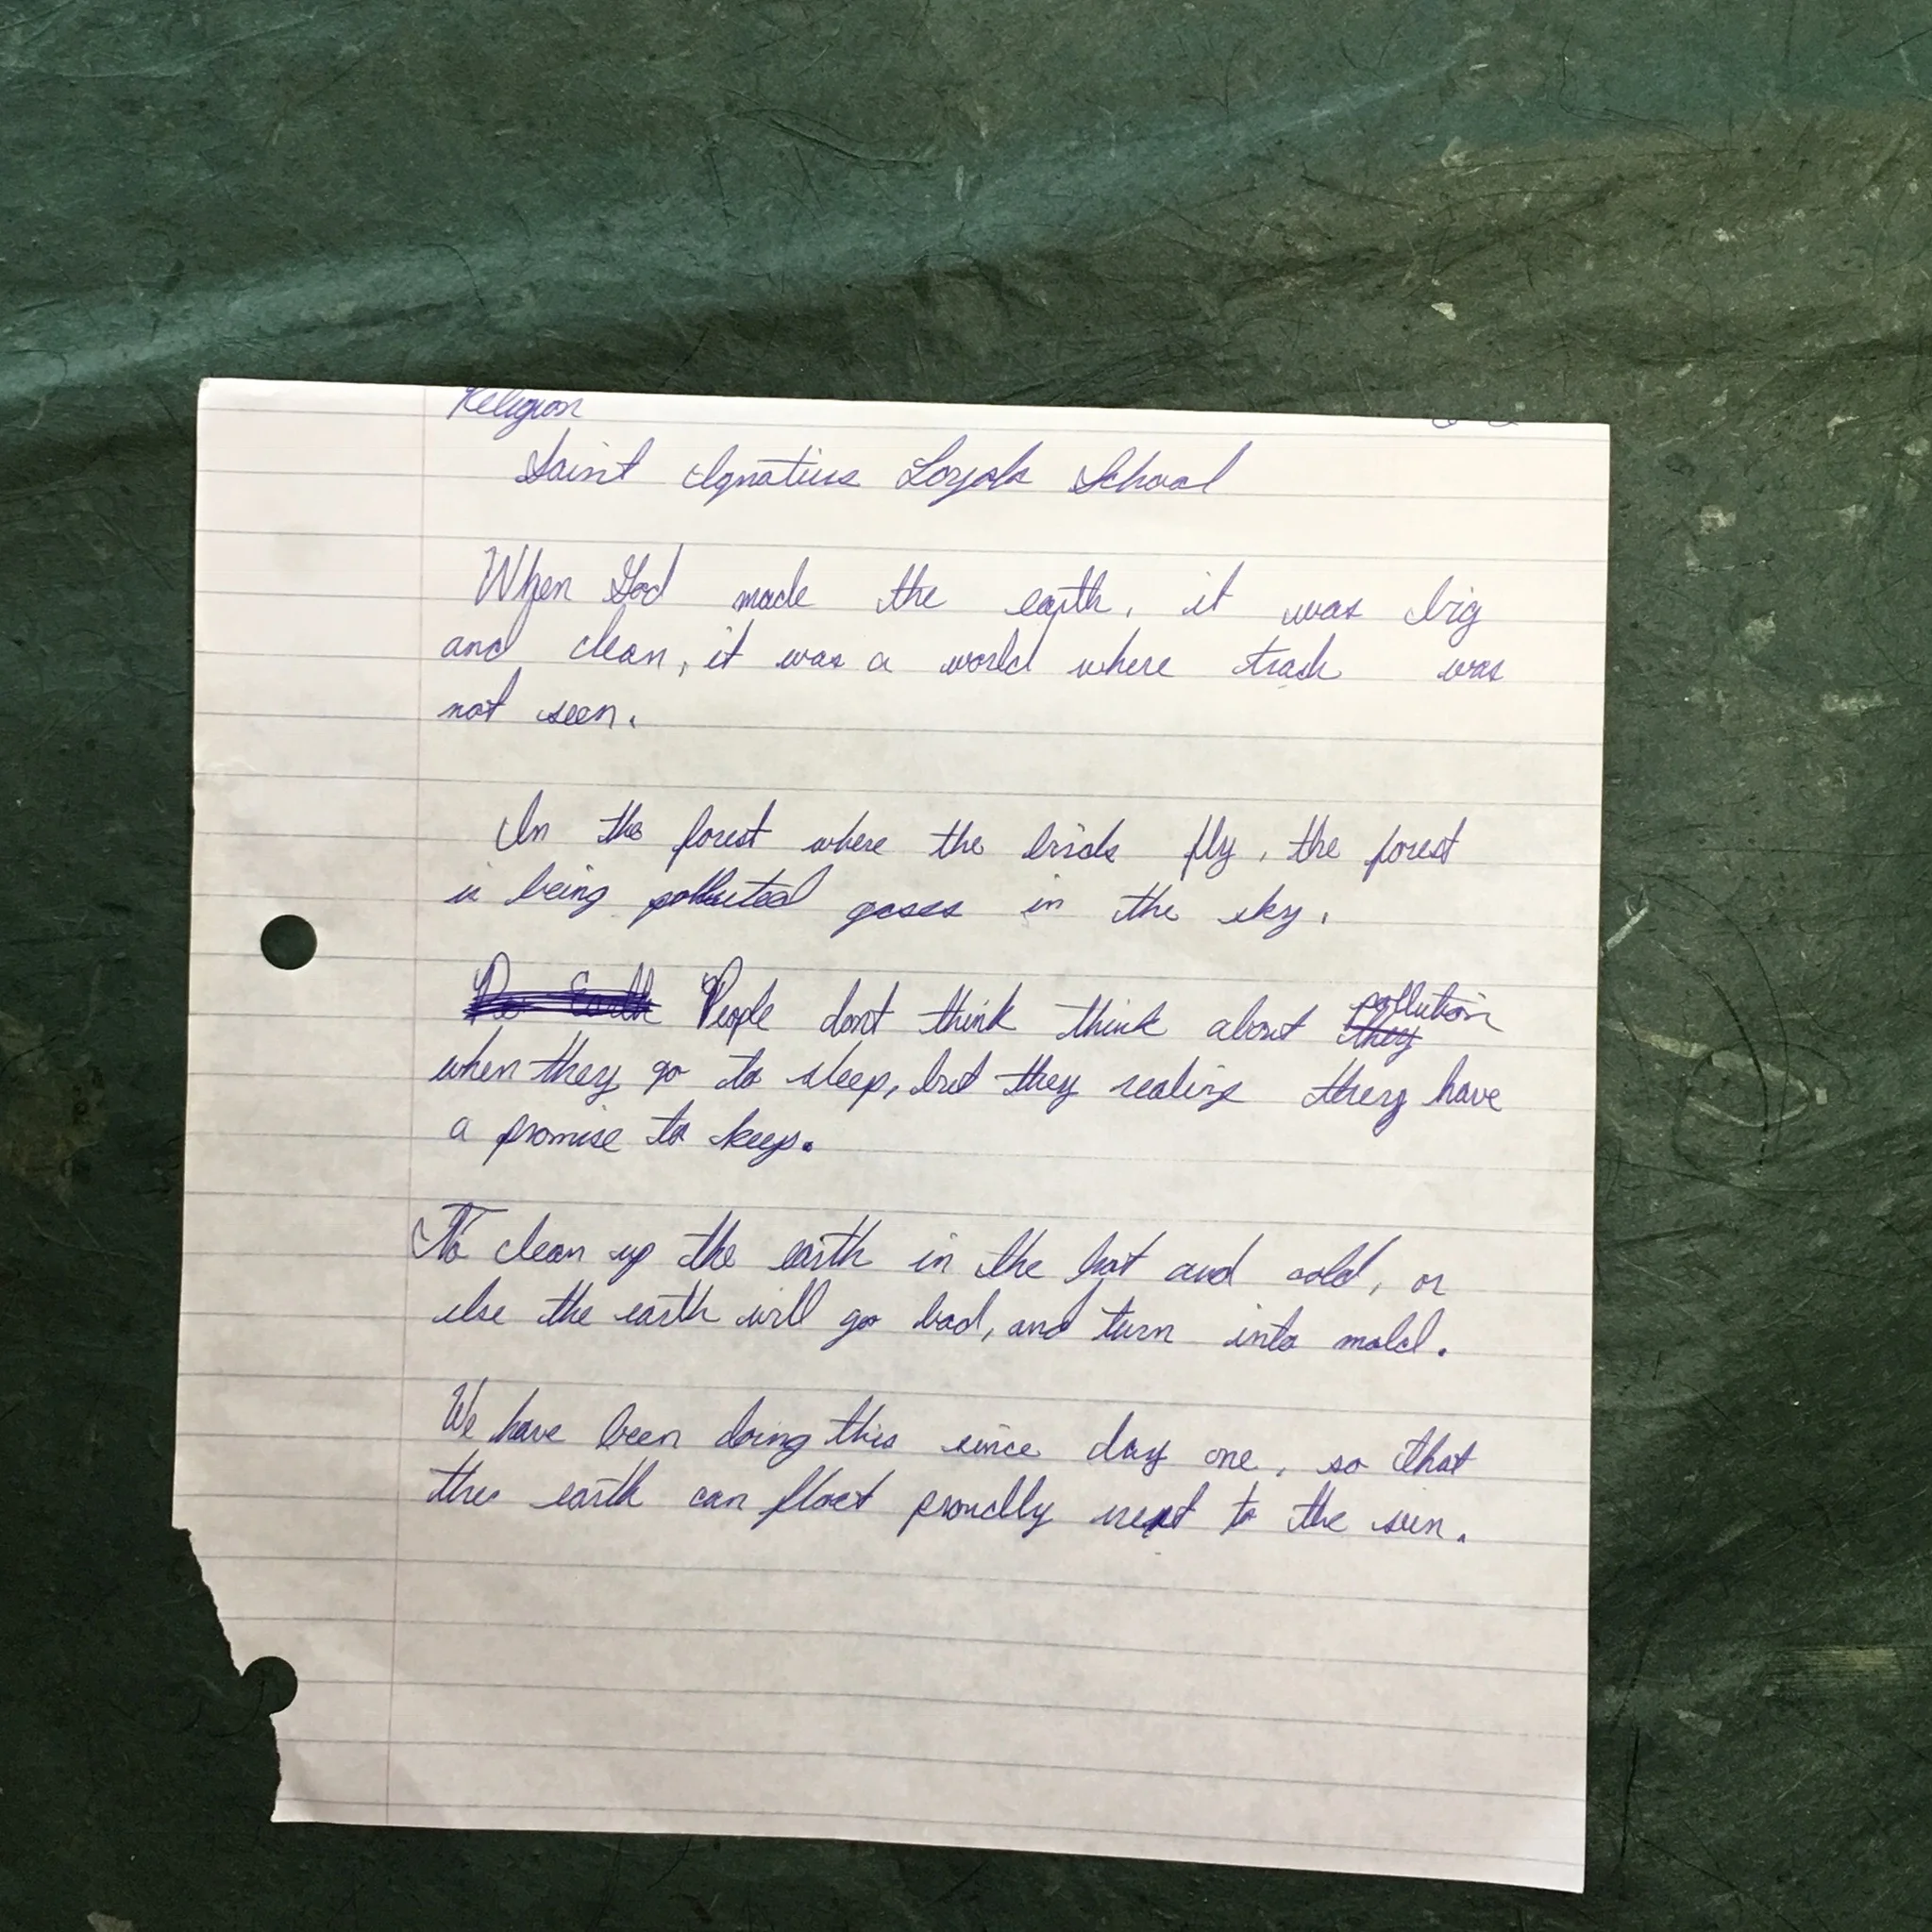 Religion
Saint Ignatius Loyola School
When God made the earth, it was big
and clean, it was a world where trash was
not seen.
In the forest where the birds fly, the forest
is being polluted gases in the sky.
People dont think think about pollution
when they go to sleep, but they realize they have
a promise to keep.
To clean up the earth in the hot and cold, or
else the earth will go bad, and turn into mold.
We have been doing this since day one, so that
the earth can float proudly next to the sun.